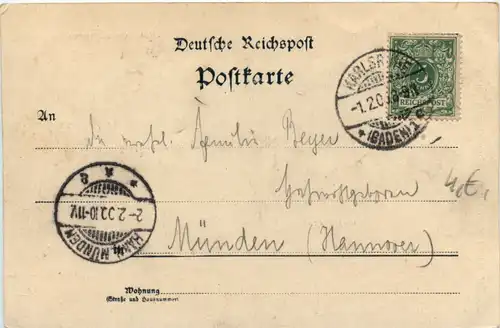 Deutsche Reichspost
Postkarte
KARLSRUHE
-1.2.00
(BADEN)
REICHSPOST
An
die Familie Beyer
4,€,
2-2.00.10-11V.
HANN. MÜNDEN
Münden (Hannover)
Wohnung
(Straße und Hausnummer)